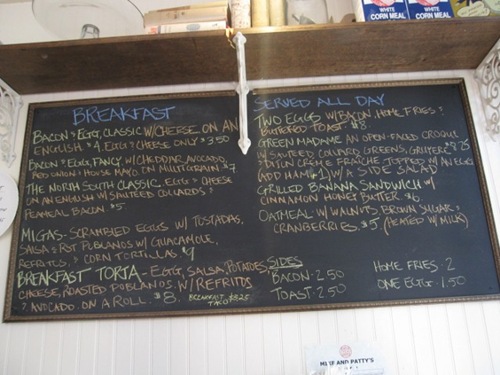 WHITE
CORN MEAL
WHITE
CORN MEAL
BREAKFAST
BACON & EGG, CLASSIC W/CHEESE ON AN
ENGLISH $4. EGG & CHEESE ONLY $3.50
BACON & EGG, FANCY. W/CHEDDAR, AVOCADO,
RED ONION & HOUSE MAYO ON MULTIGRAIN $7
THE NORTH SOUTH CLASSIC. EGG & CHEESE
ON AN ENGLISH W/SAUTEED COLLARDS &
PEAMEAL BACON. $5
MIGAS - SCRAMBLED EGGS W/ TOSTADAS,
SALSA & RST POBLANOS W/ GUACAMOLE,
REFRITOS, & CORN TORTILLAS. $9
BREAKFAST TORTA - EGG, SALSA, POTATOES,
CHEESE, ROASTED POBLANOS, W/ REFRITOS
& AVOCADO. ON A ROLL. $8. BREAKFAST
TACO
SERVED ALL DAY
TWO EGGS W/BACON HOME FRIES &
BUTTERED TOAST. $8
GREEN MADAME AN OPEN-FACED CROQUE
W/ SAUTEED COLLARD GREENS, GRUYERE &
DIJON CREME FRAICHE TOPPED W/ AN EGG
(ADD HAM W/ A SIDE SALAD
GRILLED BANANA SANDWICH W/
CINNAMON HONEY BUTTER. $6.
OATMEAL W/ WALNUTS, BROWN SUGAR &
CRANBERRIES. $5. (HEATED W/ MILK)
SIDES
BACON - 2.50
TOAST - 2.50
HOME FRIES - 2
ONE EGG - 1.50
MIKE AND PATTY'S